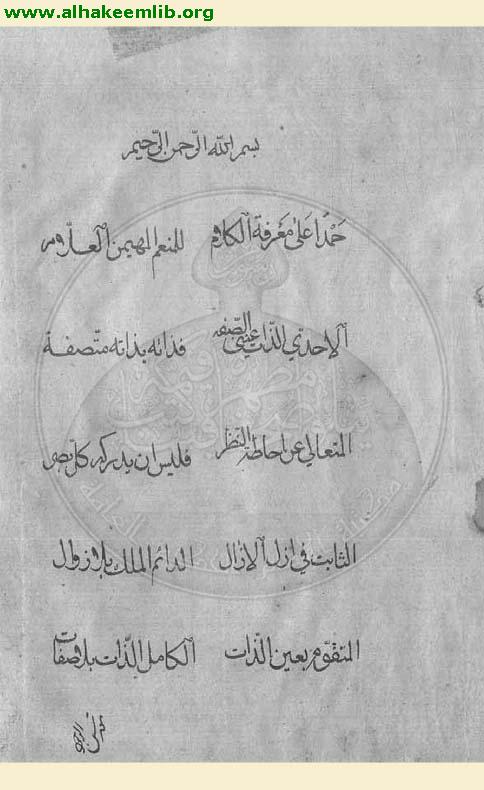 www.alhakeemlib.org
بسم الله الرّحمن الرّحيم
حَمْدًا عَلى مَعْرفة الكلام للمنعم المهيمن العلّام
الاحديّ الذات عينيّ الصّفه فذاته بذاته متّصفة
المتعالي عن احاطة النّظر فليس ان يدركه كلّ بصر
الثابت في ازل الازال الدائم الملك بلا زوال
المتقوّم بعين الذّات الكامل الذّات بلا صفات